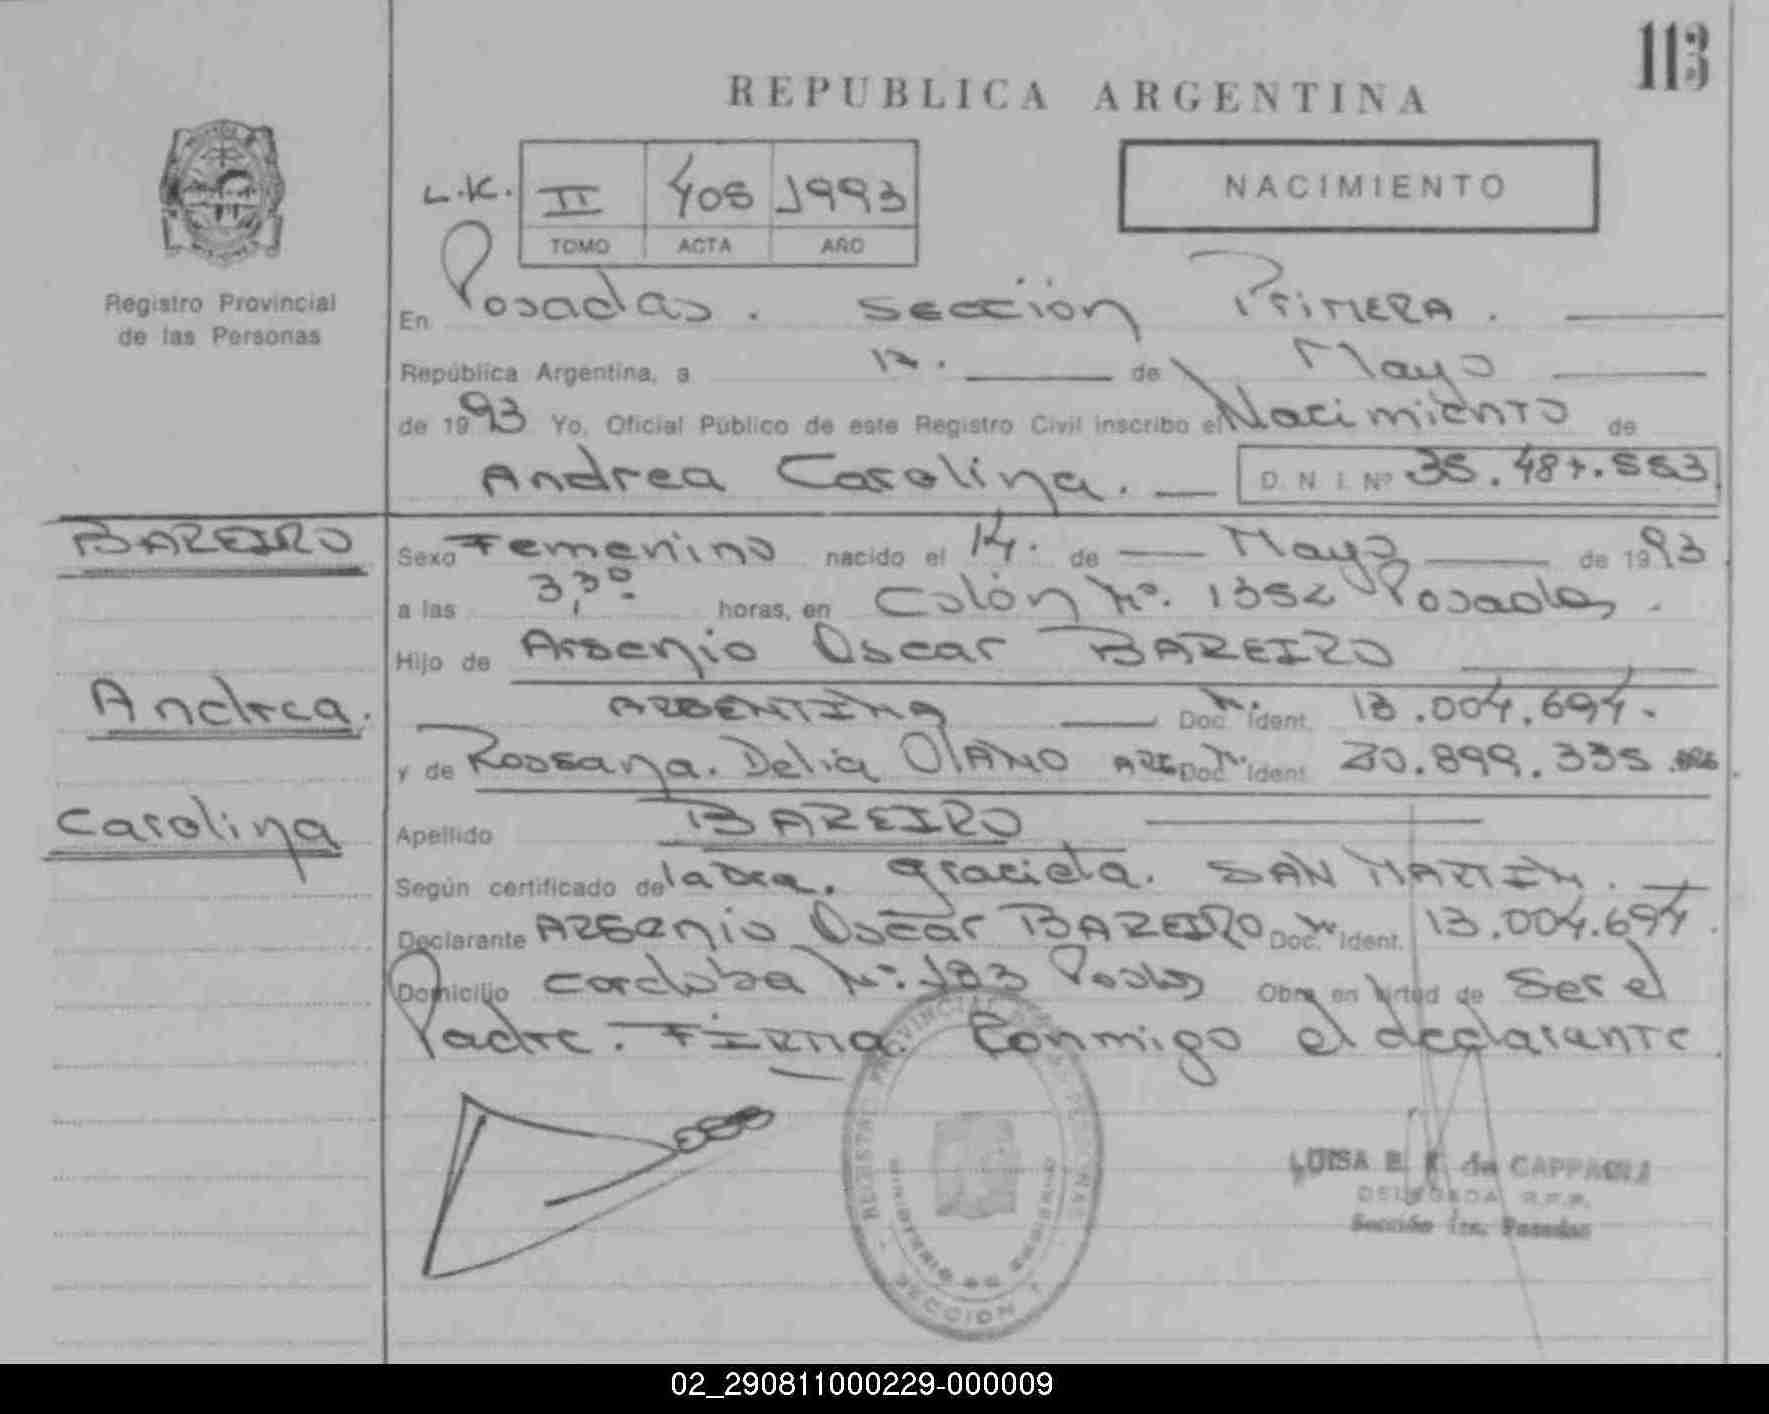 113
REPUBLICA ARGENTINA
L.K. II 405 1993
TOMO ACTA AÑO
NACIMIENTO
Registro Provincial
de las Personas
En Posadas. Sección Primera.
República Argentina, a 17. de Mayo
de 1993 Yo, Oficial Público de este Registro Civil inscribo el Nacimiento de
Andrea Carolina. D. N. I. Nº 35.487.553
BAREIRO
Sexo Femenino nacido el 14. de Mayo de 1993
a las 3,30 horas, en Colón Nº. 1352 Posadas.
Hijo de Arsenio Oscar BAREIRO
Andrea.
ARGENTINA Doc. Ident. 13.004.694.
y de Rossana. Delia OLANO ARG Doc. Ident. 20.899.335.
Carolina
Apellido BAREIRO
Según certificado de la Dra. Graciela. SAN MARTIN.
Declarante ARSENIO Oscar BAREIRO Doc. Ident. 13.004.694.
Domicilio Cordoba Nº. 183 Posdas Obra en virtud de Ser el
Padre. FIRMA. Conmigo el declarante.
REGISTRO PROVINCIAL DE LAS PERSONAS
MINISTERIO DE GOBIERNO
SECCION 1
LUISA de CAPPAGLI
DELEGADA R.P.P.
Sección 1ra. Posadas
02_290811000229-000009